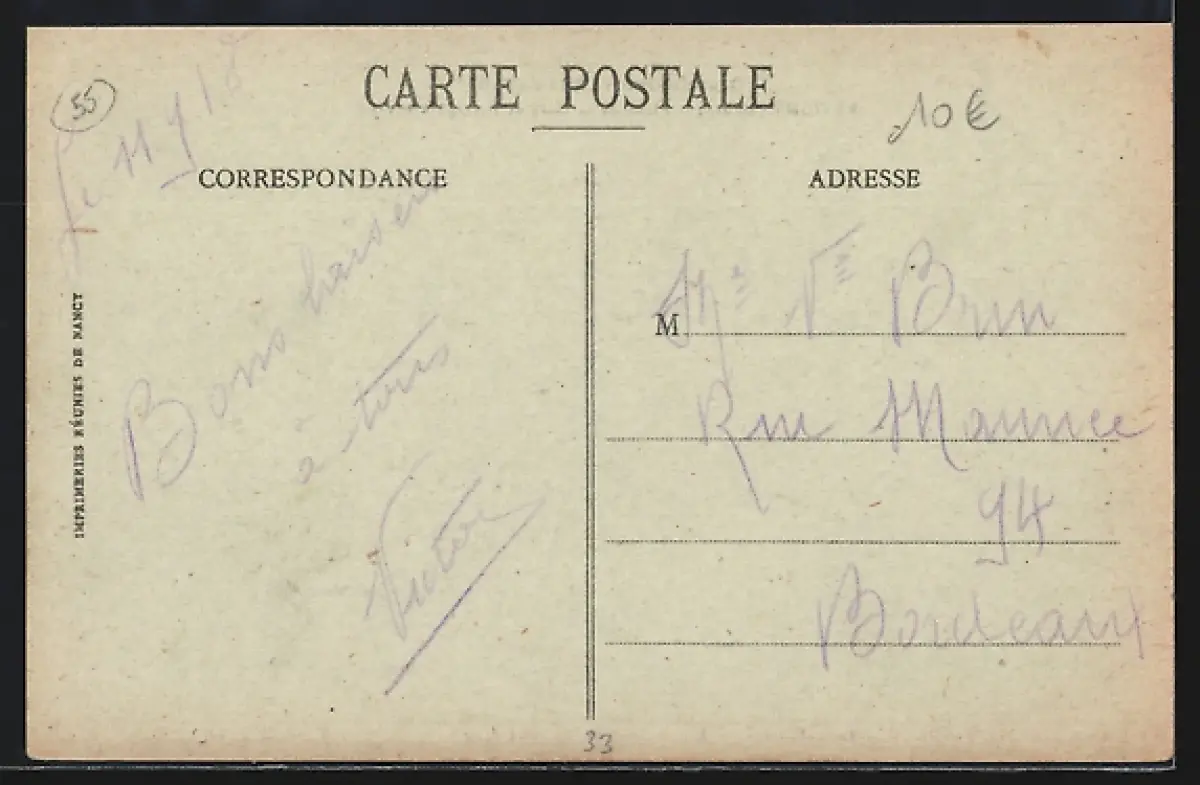 CARTE POSTALE
55
10€
Le 11 9 18
CORRESPONDANCE
Bons baisers
à tous
Victor
IMPRIMERIES RÉUNIES DE NANCY
ADRESSE
M Me Vve Brun
Rue Maurice
94
Bordeaux
33